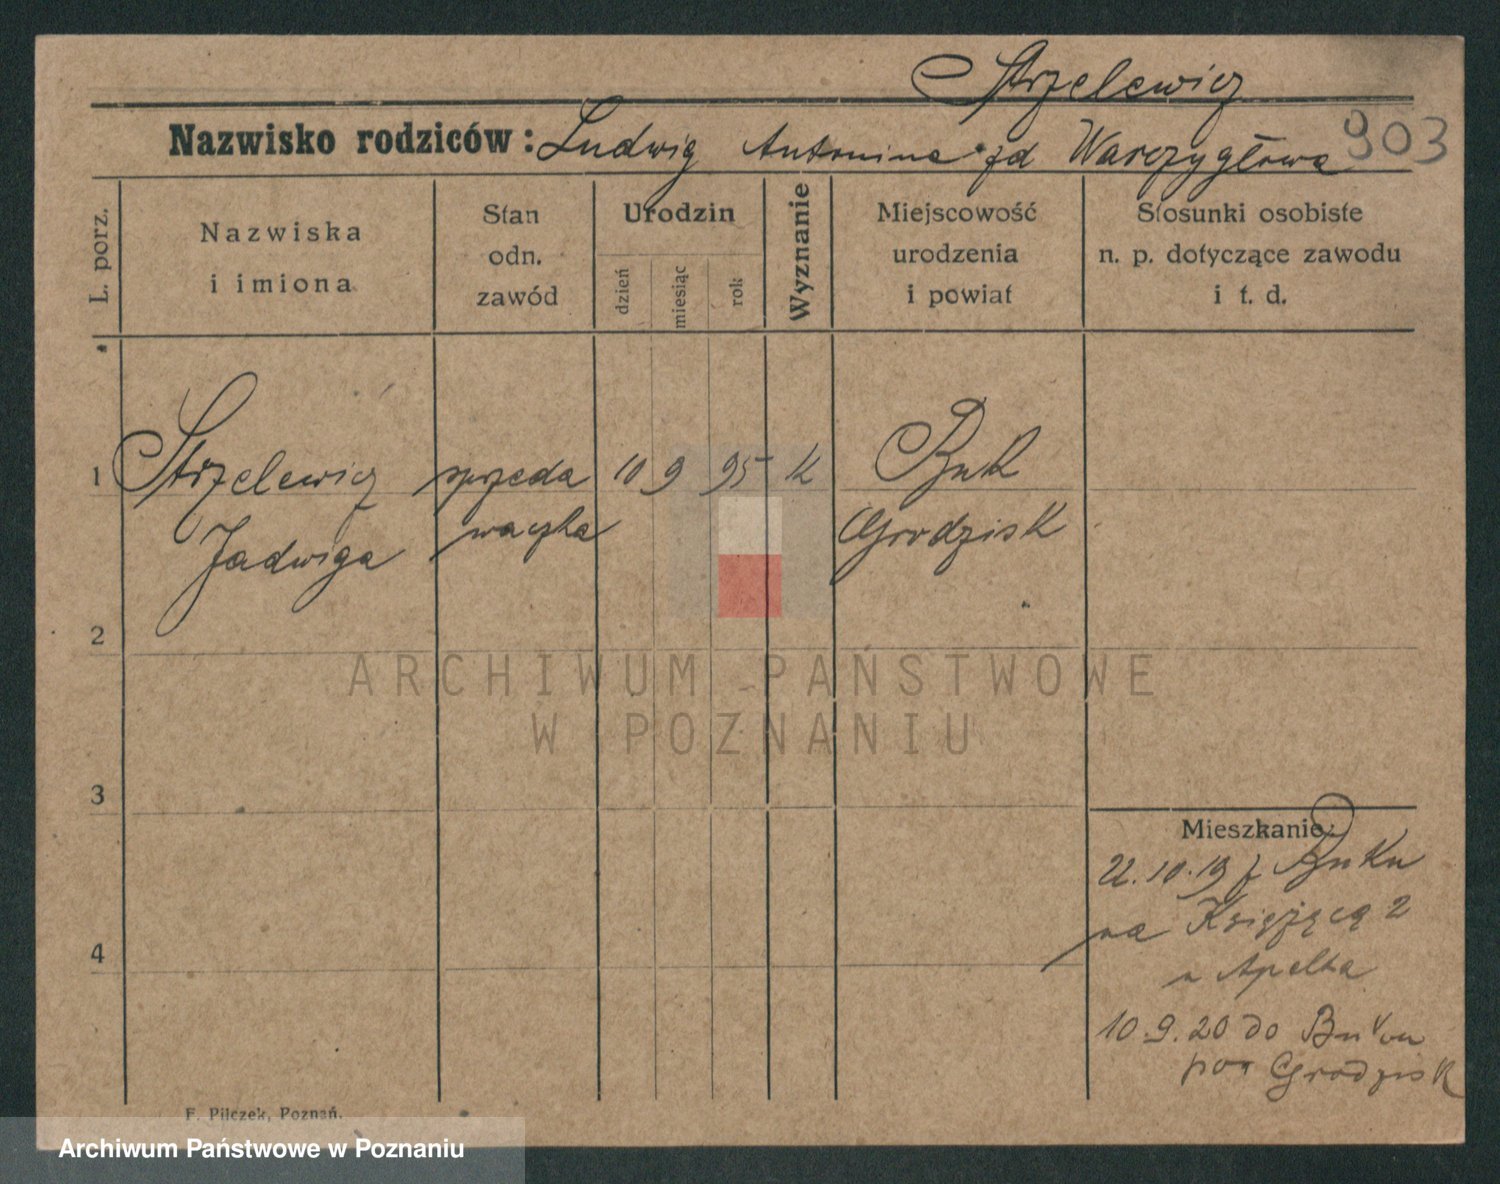 Strzelewicz
903
Nazwisko rodziców: Ludwig Antonina zd Warczygłowa
L. porz.
Nazwiska
i imiona
Stan
odn.
zawód
Urodzin
dzień
miesiąc
rok
Wyznanie
Miejscowość
urodzenia
i powiat
Stosunki osobiste
n. p. dotyczące zawodu
i t. d.
1 Strzelewicz sprzeda 10 9 95 k Buk
Jadwiga waczka Grodzisk
2
ARCHIWUM PAŃSTWOWE
W POZNANIU
3
Mieszkanie:
22.10.19 z Buku
na Księżęcą 2
u Apelta
4
10.9.20 do
pow Grodzisk
F. Pilczek, Poznań.
Archiwum Państwowe w Poznaniu